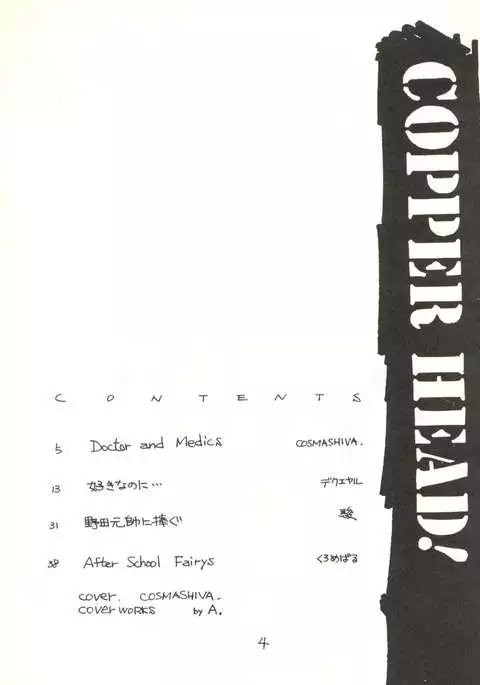 COPPER HEAD!
CONTENTS
5 Doctor and Medics COSMASHIVA.
13 好きなのに… デクエヤル
31 野田元帥に捧ぐ 駿
38 After School Fairys くろめばる
cover. COSMASHIVA.
cover works by A.
4